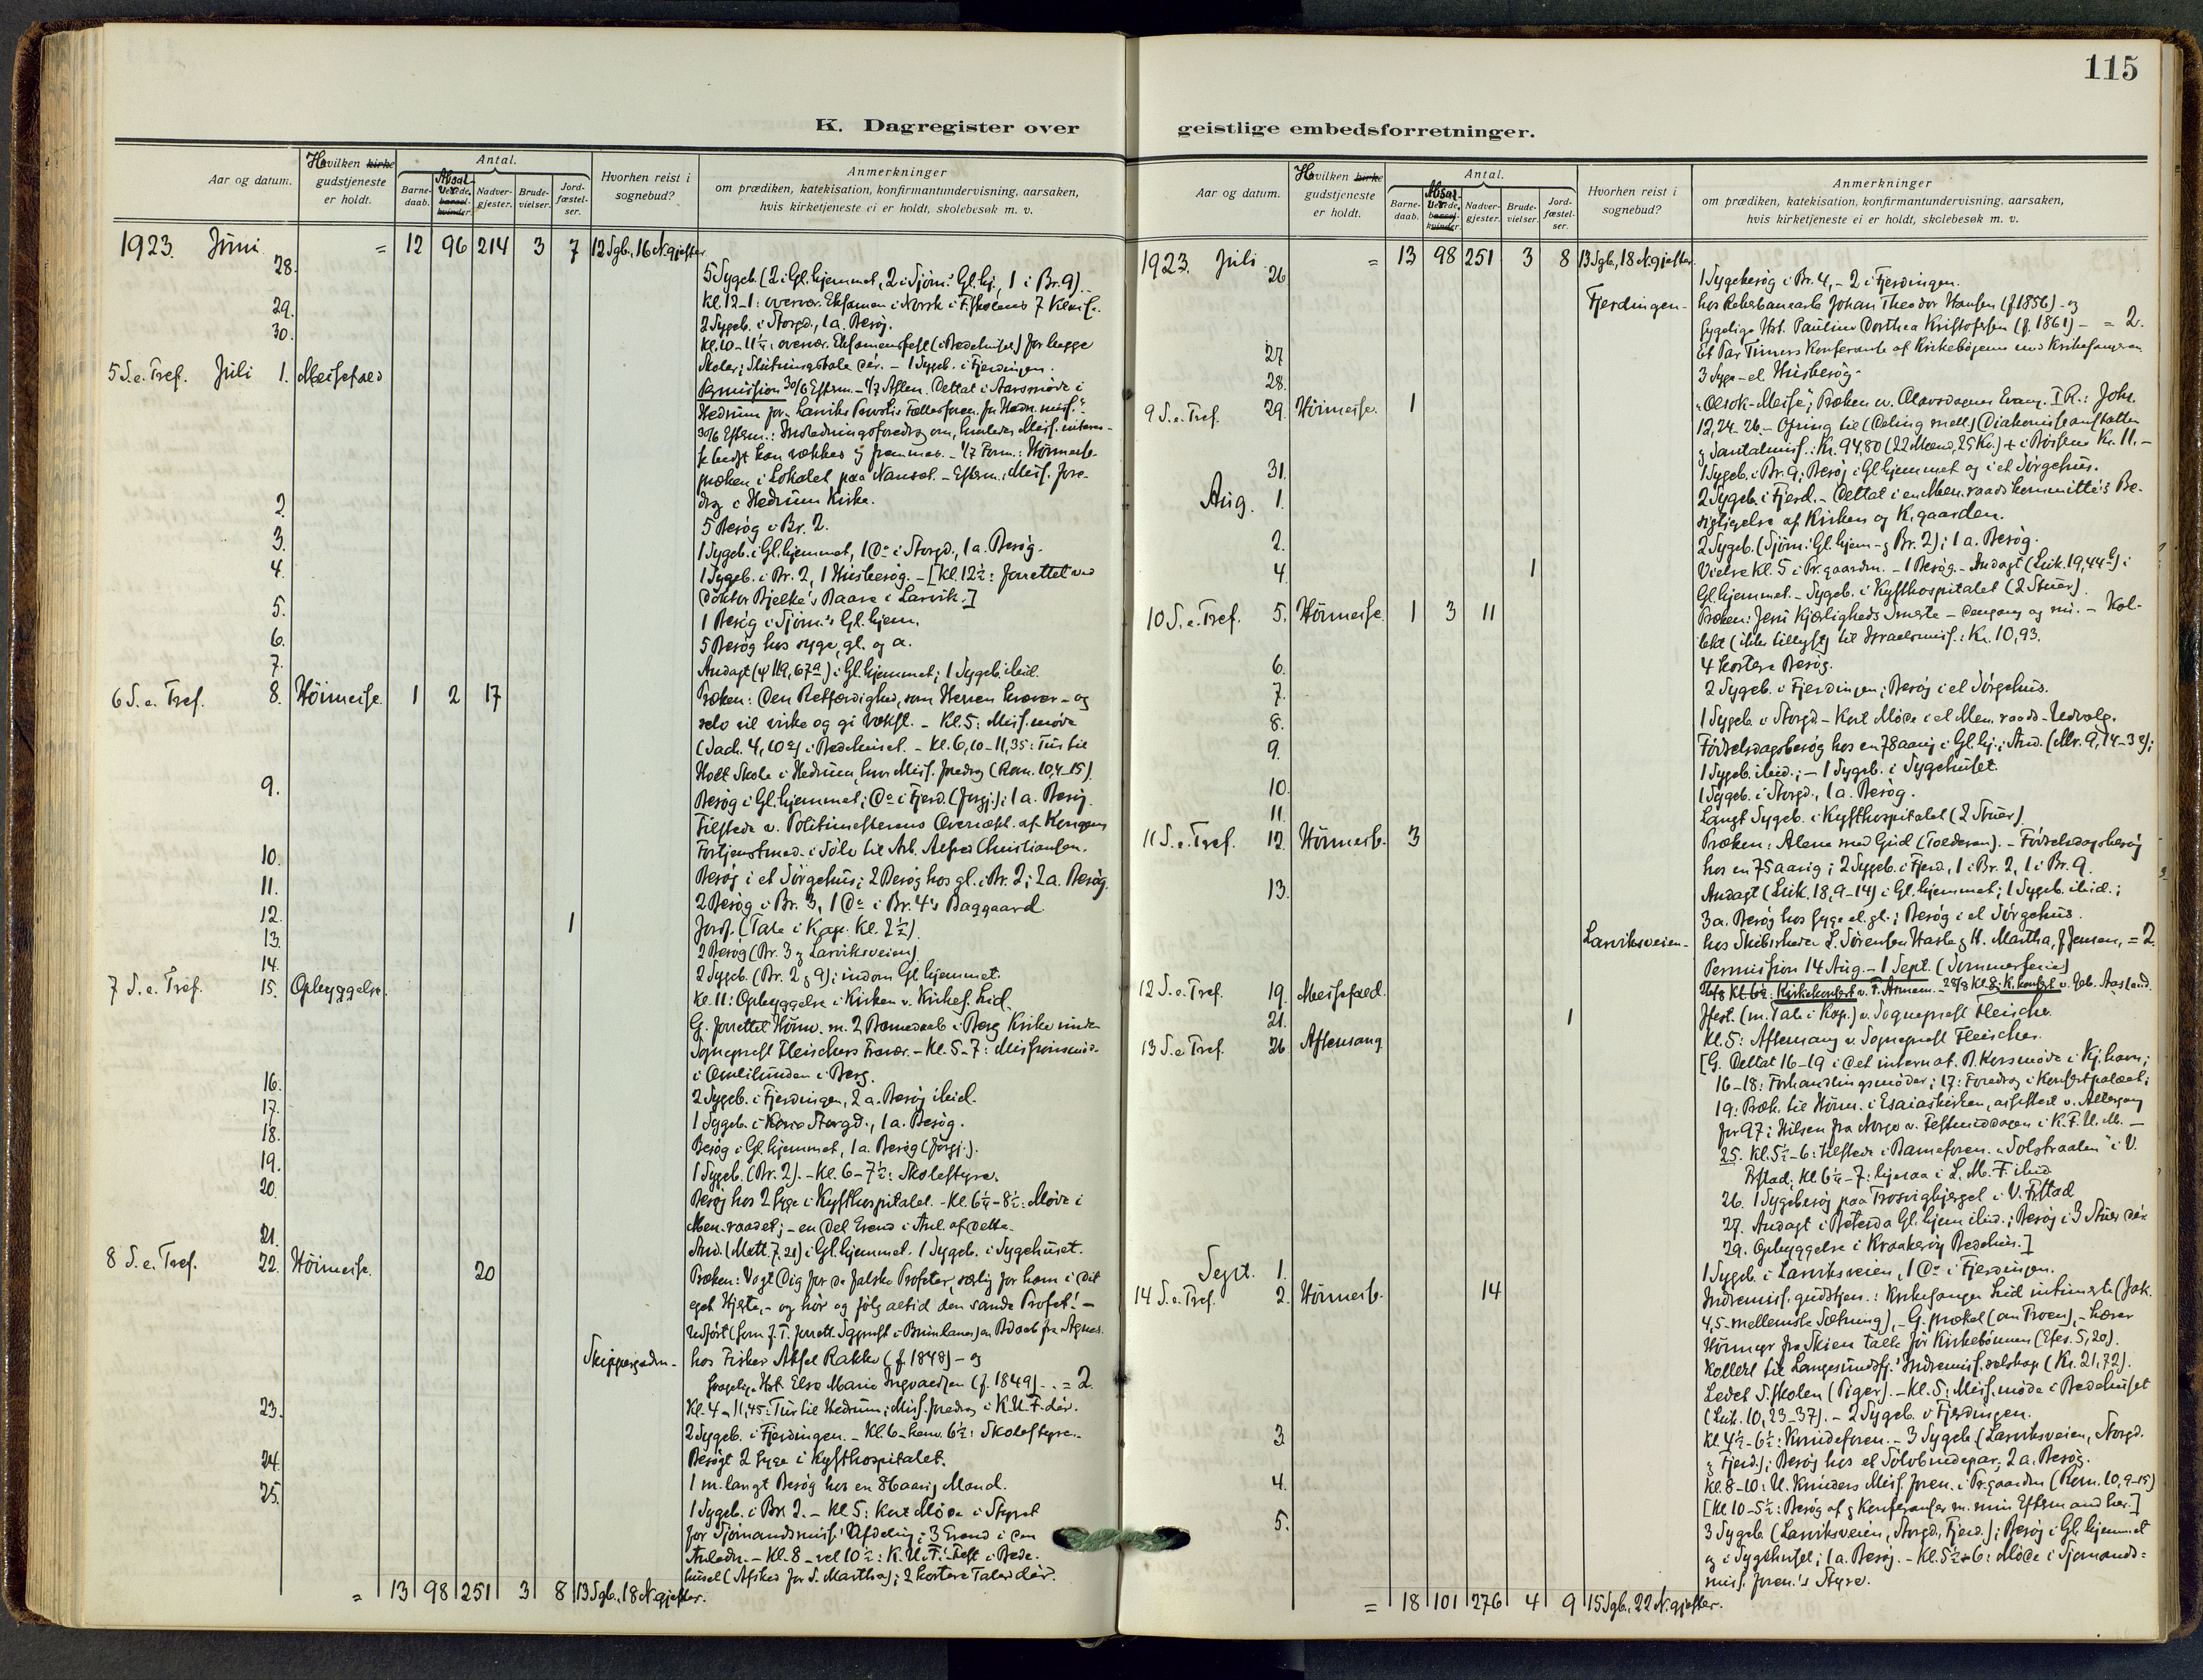 115
K. Dagregister over
geistlige embedsforretninger.
Aar og datum.
Hvilken kirke gudstjeneste er holdt.
Antal.
Barnedaab.
Nadvergjester.
Brudevielser.
Jordfæstelser.
Hvorhen reist i sognebud?
Anmerkninger
om prædiken, katekisation, konfirmantundervisning, aarsaken,
hvis kirketjeneste ei er holdt, skolebesøk m. v.
1923. Juni = 12 96 214 3 7 12 Sgb., 16 N.gjester
28. 5 Sygeb. (2 i Gl. hjemmet, 2 i Sjøm.' Gl. hj., 1 i Br. 9).
29. 2 Sygeb. i Storgd., 1 a. Besøg.
30.
5 S. e. Tref. Juli 1. Messefald
Hedrum Kirke.
2. 5 Besøg i Br. 2.
3. 1 Sygeb. i Gl. hjemmet, 1 Do i Storgd., 1 a. Besøg.
4. 1 Sygeb. i Br. 2, 1 Husbesøg. - [Kl. 12½: forrettet ved
Doktor Bjelke's Baare i Larvik.]
5. 1 Besøg i Sjøm.'s Gl. hjem.
6. 5 Besøg hos syge, gl. og a.
7. Andagt (ψ 119, 67a) i Gl. hjemmet; 1 Sygeb. ibid.
6 S. e. Tref. 8. Høimesse 1 2 17 Præken: Den Retfærdighed, som Herren kræver - og
selv vil virke og gi Vækst. - Kl. 5: Miss.møde
i Bedehuset. - Kl. 6,10 - 11,35: Tur til
Holt Skole i Hedrum, hvor Miss. foredrag (Rom. 10,4-15).
9. Besøg i Gl. hjemmet; Do i Fjerd. (forgj.); 1 a. Besøg.
Tilstede v. Politimesterens Overrækk. af Kongens
Fortjenstmed. i Sølv til Arb. Alfred Christiansen.
10. Besøg i et Sørgehus; 2 Besøg hos gl. i Br. 2; 2 a. Besøg.
11. 2 Besøg i Br. 3, 1 Do i Br. 4's Baggaard.
12. 1 Jordf. (Tale i Kap. Kl. 2½).
13. 2 Besøg (Br. 3 & Larviksveien)
14. 2 Sygeb. (Br. 2 & 9); indom Gl. hjemmet.
7 S. e. Tref. 15. Opbyggelse. Kl. 11: Opbyggelse i Kirken v. Kirkes. Lid.
G. forrettet Høim. m. 2 Barnedaab i Berg Kirke under
Sogneprest Fleischers Fravær. - Kl. 5-7: Missionsmøde
i Berg.
16. 2 Sygeb. i Fjerdingen, 2 a. Besøg ibid.
17. 1 Sygeb. i Storgd., 1 a. Besøg.
18. Besøg i Gl. hjemmet, 1 a. Besøg (forgj.).
19. 1 Sygeb. (Br. 2). - Kl. 6-7½: Skolestyre.
20. Besøg hos 2 Syge i Kysthospitalet. - Kl. 6¼-8½: Møde i
Men.raadet; - en Del Erend i Anl. af dette.
21. And. (Matt. 7, 21) i Gl. hjemmet. 1 Sygeb. i Sygehuset.
8 S. e. Tref. 22. Høimesse. 20 Præken: Vogt Dig for de falske Profeter, særlig for ham i dit
eget Hjerte, - og hør og følg altid den sande Profet! -
Skippergaden - hos Fisker Aksel Bakke (f. 1848) - og
svagelige Hst. Else Marie Ingvaldsen (f. 1849) = 2.
Kl. 4-11,45: Tur til Hedrum; Miss. foredrag i K.U.F. dér.
23. 2 Sygeb. i Fjerdingen. - Kl. 6 - henv. 6½: Skolestyre.
24. Besøgt 2 Syge i Kysthospitalet.
1 m. langt Besøg hos en 86aarig Mand.
25. 1 Sygeb. i Br. 2. - Kl. 5: Kort Møde i Styret
for Sjømandsmiss.' Afdeling; 3 Erend i den
Anledn. - Kl. 8 - vel 10½: K.U.F.'-Fest i Bedehuset
(Afsked for S. Martha); 2 kortere Taler dér.
= 13 98 251 3 8 13 Sgb., 18 N.gjester.
Aar og datum.
Hvilken kirke gudstjeneste er holdt.
Antal.
Barnedaab.
Nadvergjester.
Brudevielser.
Jordfæstelser.
Hvorhen reist i sognebud?
Anmerkninger
om prædiken, katekisation, konfirmantundervisning, aarsaken,
hvis kirketjeneste ei er holdt, skolebesøk m. v.
1923. Juli = 13 98 251 3 8 13 Sgb., 18 N.gjester
26. 1 Sygebesøg i Br. 4, - 2 i Fjerdingen.
Fjerdingen - hos Johan Theodor Hansen (f. 1856) - og
sygelige Hst. Pauline Dorthea Kristofersen (f. 1861) - = 2.
27. Et Par Timers Konferanse af Kirkebøgerne med Kirkesangeren
28. 3 Syge- el. Husbesøg.
9 S. e. Tref. 29. Høimesse. 1 "Olsok-Messe"; Præken ov. Olavsdagens Evang. I R.: Joh.
12, 24-26. - Ofring til (Deling mell.) Diakonisseanstalten
& Santalmiss.: Kr. 94,80 (22 Mænd, 25 Kv.) + i Bøssene Kr. 11. -
31. 1 Sygeb. i Br. 9; Besøg i Gl. hjemmet og i et Sørgehus.
Aug. 1. 2 Sygeb. i Fjerd. - Deltat i en Men.raadskommitté's Besigtigelse
af Kirken og K.gaarden.
2. 2 Sygeb. (Sjøm.' Gl. hjem & Br. 2); 1 a. Besøg.
4. 1 Vielse Kl. 5 i Pr.gaarden. - 1 Besøg. - Andagt (Luk. 19, 44) i
Gl. hjemmet. - Sygeb. i Kysthospitalet (2 Stuer).
10 S. e. Tref. 5. Høimesse 1 3 11 Præken: Jesu Kjærligheds Smerte - dengang og nu. - Kollekt
(ikke tillyst) til Israelsmiss.: Kr. 10,93.
6. 4 kortere Besøg.
7. 2 Sygeb. i Fjerdingen; Besøg i et Sørgehus.
8. 1 Sygeb. i Storgd. - Kort Møde i et Men.raads-Udvalg.
9. Fødselsdagsbesøg hos en 78aarig i Gl. hj.; And. (Mr. 9, 14-32);
1 Sygeb. ibid.; - 1 Sygeb. i Sygehuset.
10. 1 Sygeb. i Storgd., 1 a. Besøg.
11. Langt Sygeb. i Kysthospitalet (2 Stuer)
11 S. e. Tref. 12. Høimesse. 3 Præken: Alene med Gud (Tolderen). - Fødselsdagsbesøg
hos en 75aarig; 2 Sygeb. i Fjerd., 1 i Br. 2, 1 i Br. 9.
13. Andagt (Luk. 18, 9-14) i Gl. hjemmet; 1 Sygeb. ibid.;
3 a. Besøg hos syge el. gl.; Besøg i et Sørgehus.
Larviksveien - hos Skibsreder L. Sørensen & H. Martha, f. Jensen, = 2.
Permission 14 Aug. - 1 Sept. (Sommerferie)
12 S. e. Tref. 19. Messefald.
21. 1 Jfæst. (m. Tale i Kap.) v. Sogneprest Fleischer.
13 S. e. Tref. 26. Aftensang Kl. 5: Aftensang v. Sogneprest Fleischer.
[G. Deltat 16-19 i det internat. møde i Kj.havn;
16-18: Forhandlingsmøder; 17: Foredrag i Konsertpalæet;
19: Præk. til Høim. i Esaiaskirken, assisteret v. Altergang
for 97; Hilsen fra Norge v. Festmiddagen i K.F.U.M. -
25. Kl. 5½-6: tilstede i Barneforen. "Solstraalen" i V.
F.stad; Kl. 6¼-7: ligesaa i L.M.F. ibid.
26. 1 Sygebesøg paa Trosvigbjerget i V. F.stad
27. Andagt i Gl. hjem ibid.; Besøg i 3 Stuer dér.
29. Opbyggelse i Kraakerøy Bedehus.]
Sept. 1. 1 Sygeb. i Larviksveien, 1 Do i Fjerdingen.
14 S. e. Tref. 2. Høimesse. 14 Indremiss.gudstjen.: Kirkesanger Lid intimerte (Jak.
4, 5 - mellemste Sætning), - G. prækte (om Troen), - Lærer
fra Skien talte før Kirkebønnen (Efes. 5, 20).
Kollekt til Langesundsfj.' Indremiss.selskap (Kr. 21,72).
Ledet S.skolen (Piger). - Kl. 5: Miss.møde i Bedehuset
(Luk. 10, 23-37). - 2 Sygeb. i Fjerdingen.
3. Kl. 4½-6½: Kvindeforen. - 3 Sygeb. (Larviksveien, Storgd.
& Fjerd.); Besøg hos et Sølvbrudepar; 2 a. Besøg.
4. Kl. 8-10: U. Kvinders Miss. foren. i Pr.gaarden (Rom. 10, 9-15)
[Kl. 10-5½: Besøg af & Konferanser m. min Eftermand her.]
5. 3 Sygeb. (Larviksveien, Storgd., Fjerd.); Besøg i Gl. hjemmet
og i Sygehuset; 1 a. Besøg. - Kl. 5½-6: Møde i Sjømandsmiss.
foren.'s Styre.
= 18 101 276 4 9 15 Sgb., 22 N.gjester.